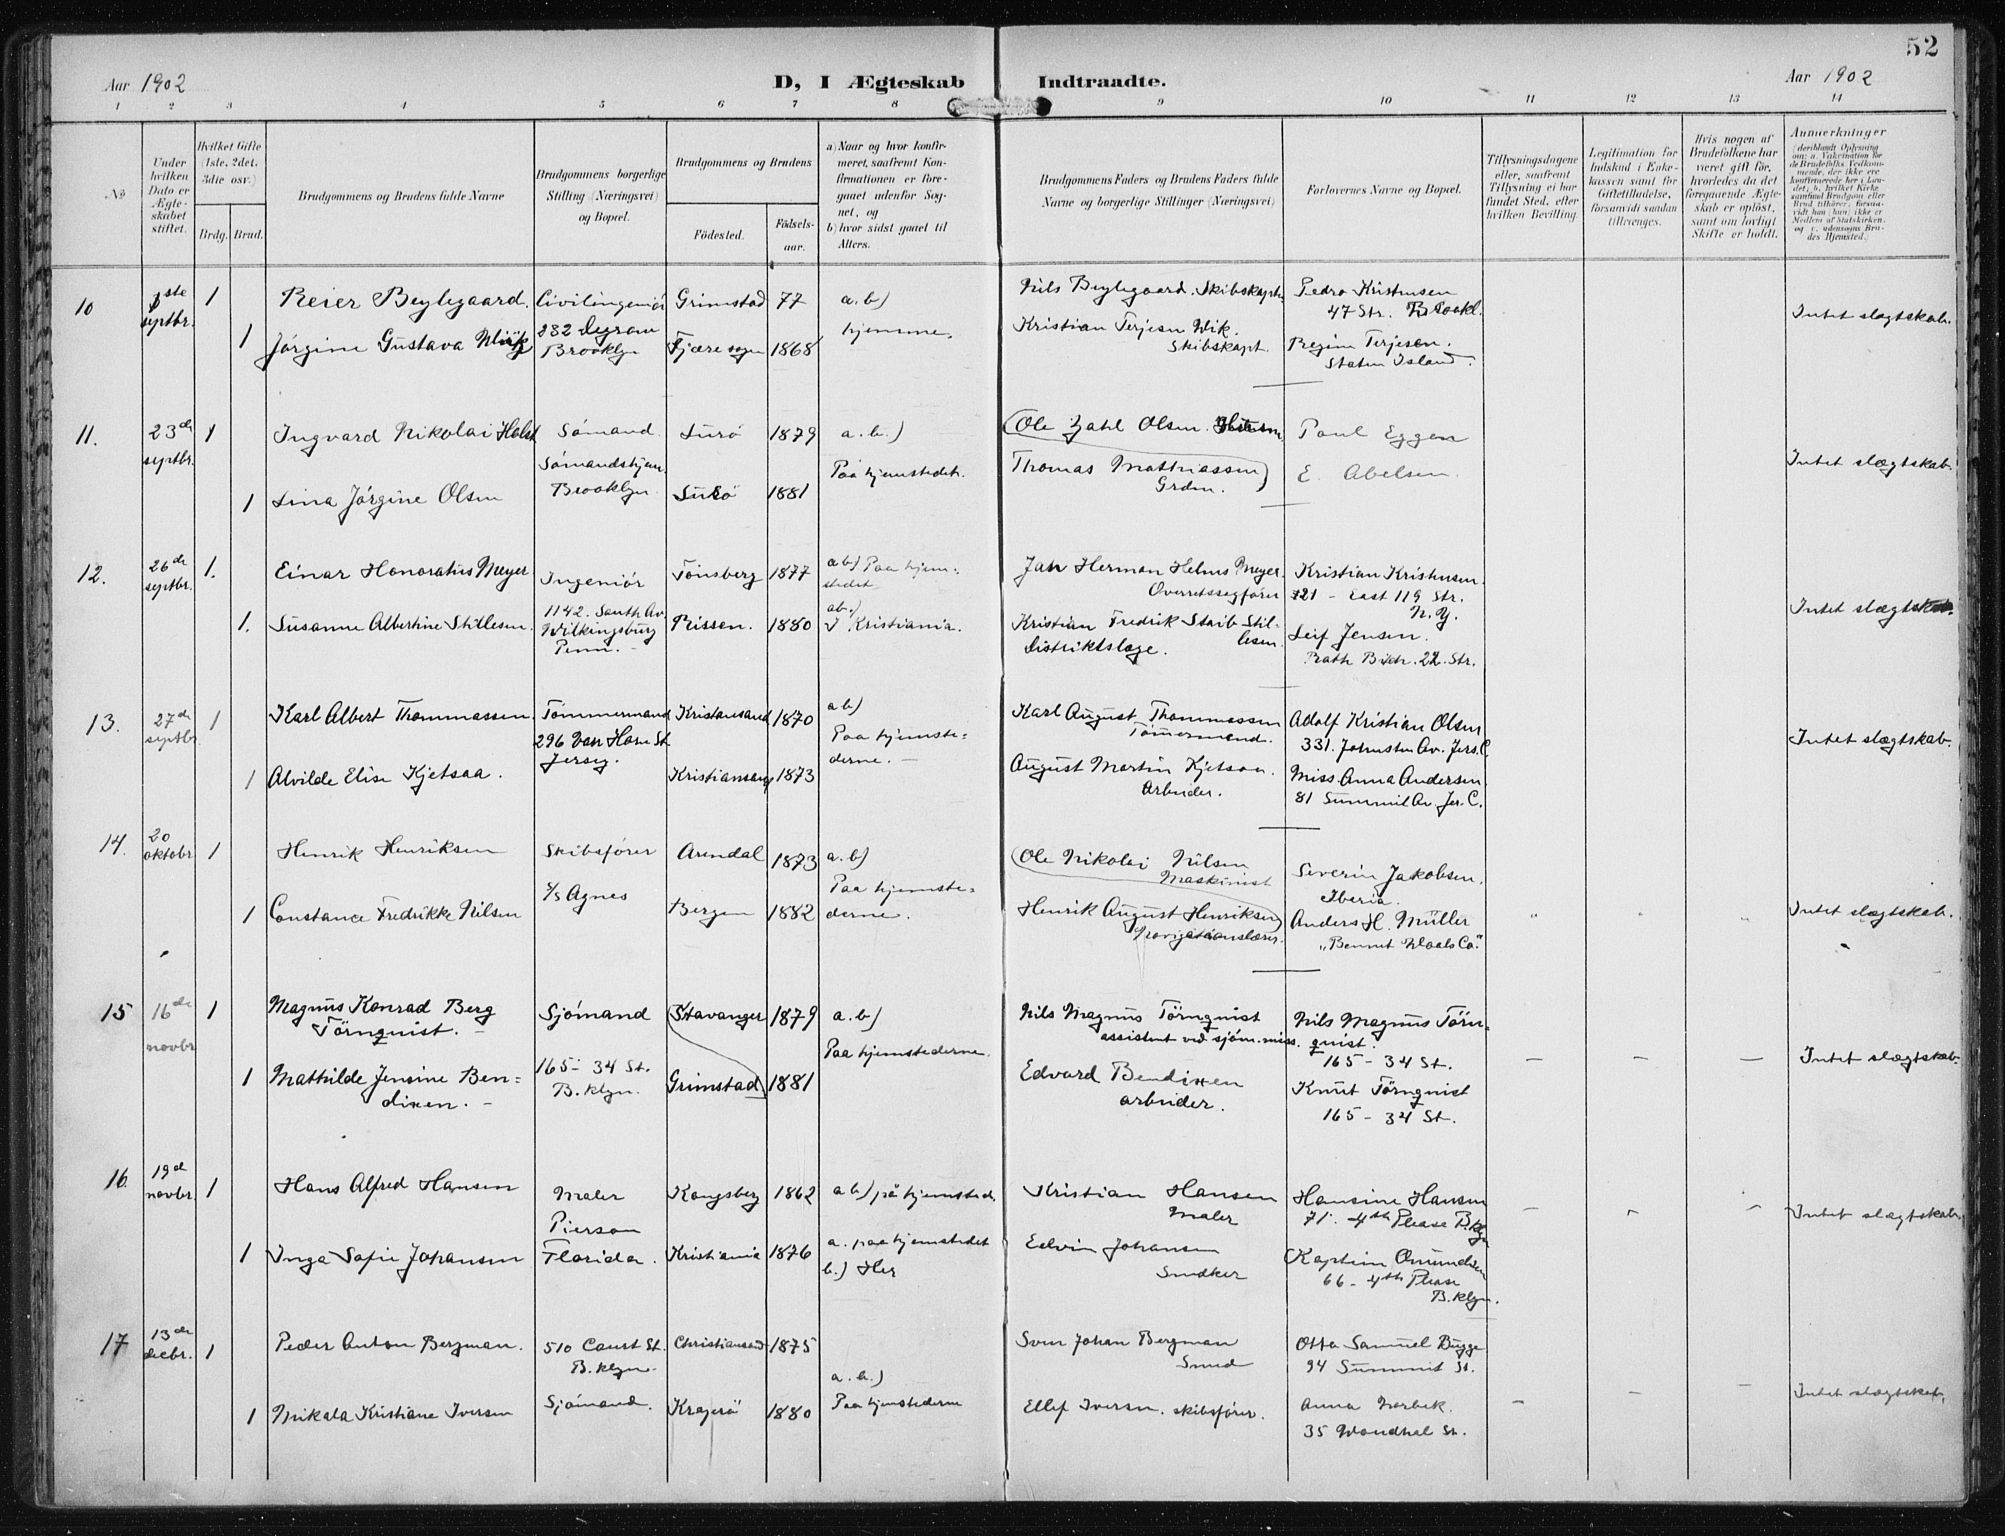 52
Aar 1902
D, I Ægteskab Indtraadte.
Aar 1902
1 2 3 4 5 6 7 8 9 10 11 12 13 14
No
Under hvilken Dato er Ægteskabet stiftet.
Hvilket Gifte (1ste, 2det, 3die osv.)
Brdg. Brud.
Brudgommens og Brudens fulde Navne
Brudgommens borgerlige Stilling (Næringsvei) og Bopæl.
Brudgommens og Brudens
Fødested.
Fødsels-aar.
a) Naar og hvor konfirmeret, saafremt Konfirmationen er foregaaet udenfor Sognet, og
b) hvor sidst gaaet til Alters.
Brudgommens Faders og Brudens Faders fulde Navne og borgerlige Stillinger (Næringsvei)
Forlovernes Navne og Bopæl.
Tillysningsdagene eller, saafremt Tillysning ei har fundet Sted, efter hvilken Bevilling.
Legitimation for Indskud i Enkekassen samt for Giftetilladelse, forsaavidt saadan tiltrænges.
Hvis nogen af Brudefolkene har været gift før, hvorledes da det foregaaende Ægteskab er opløst, samt om lovligt Skifte er holdt.
Anmerkninger
(deriblandt Oplysning om: a. Vakcination for de Brudefolks Vedkommende, der ikke ere konfirmerede her i Landet; b. hvilket Kirkesamfund Brudgom eller Brud tilhører, forsaavidt han (hun) ikke er Medlem af Statskirken, og c. udensogns Brudes Hjemsted.)
10 1ste septbr. 1 Reier Beylegaard. Civilingeniör Grimstad 77 a.b) Nils Beylegaard. Skibskapt. Pedro Kristensen
47 Str. Brookl.
Intet slægtskab.
1 Jörgine Gustava Wiik 232 Brooklyn Fjære sogn 1868 hjemme. Kristian Terjesen Wik. Skibskapt. Regine Terjesen.
Staten Island.
11. 23de septbr. 1 Ingvard Nikolai Holst Sømand. Surö 1879 a.b.) Ole Zahl Olsen. Paul Eggen
Sømandshjem Brooklyn. Paa hjemstedet.
Intet slægtskab.
1 Lina Jørgine Olsen Surö 1881 Thomas Mathiassen Grdm. E. Abelsen.
12. 26de septbr. 1. Einar Honoratus Meyer Ingeniör Tönsberg 1877 ab) Paa hjemstedet Jah Herman Helms Meyer. Overretssagfører Kristian Kristensen.
321 - East 119 Str.
N.Y.
Intet slægtskab.
1. Susanne Albertine Stillesen. 1142. South Av. Wilkingsburg Penn. - Rissen. 1880 ab.) I Kristiania. Kristian Fredrik Staib Stillesen. Distriktslæge. Leif Jensen.
Bath Bech. 22. Str.
13. 27de septbr 1 Karl Albert Thommassen. Tømmermand Kristiansand 1870 ab) Karl August Thommassen Tömmermend. Adolf Kristian Olsen
296 Van Horne St. Jersey. Paa hjemstederne. - 331. Johnston Av. Jers. C.
Intet slægtskab.
1 Alvilde Elise Kjetsaa. Kristiansand 1873 August Martin Kjetsaa. Arbeider. Miss Anna Andersen
81 Summit Av Jer. C.
14. 20 oktobr 1 Henrik Henriksen Skibsfører Arendal 1873 a.b) Ole Nikolai Nilsen Maskinist Severin Jakobsen.
Iberia.
s/s Agnes Paa hjemstederne.
1 Constance Fredrikke Nilsen Bergen 1882 Henrik August Henriksen Navigationslærer. Anders H. Müller
„Bennet Co."
Intet slægtskab.
15 16de novbr 1 Magnus Konrad Berg Törnquist. - Sjømand Stavanger 1879 a.b) Nils Magnus Törnquist
assistent ved sjöm. miss. Nils Magnus Törnquist.
165 - 34 St.
Paa hjemstederne.
Intet slægtskab.
1 Mathilde Jensine Bendixen. - 165 - 34 St. B.klyn. Grimstad 1881 Edvard Bendixen arbeider. Knut Törnquist
165 - 34 St.
16. 19d novbr. 1 Hans Alfred Hansen Maler Kongsberg 1862 ab) på hjemsted. Kristian Hansen Maler Hansine Hansen
71. 4th Please B.klyn
Intet slægtskab.
1 Inga Sofie Johansen Pierson Florida. Kristiania 1876 a. paa hjemstedet
b.) Her Edvin Johansen Snedker Kaptein Omundsen
66 - 4th Please
B.klyn.
17 13de decbr. 1 Peder Anton Bergman. 510 Court St. B.klyn. Christiansand 1875 Sven Johan Bergman Smed Otto Samuel Bugge
94 Summit St.
a.b.)
Intet slægtskab.
1 Mikala Kristiane Iversen Sjømand. Kragerö 1880 Paa hjemstederne Ellef Iversen. Skibsfører. Anna Norbek.
35 Woodhul St.